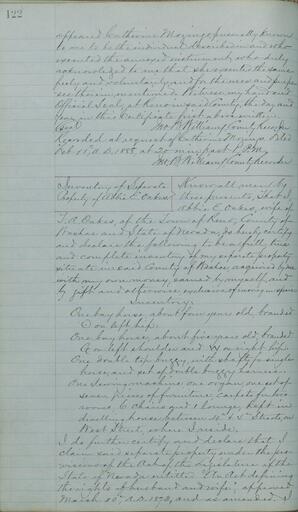 122
appeared Catherine Mayugo personally known
to me to be the individual described in and who
executed the annexed instrument, who duly
acknowledged to me that she executed the same
freely and voluntarily and for the uses and purpo-
ses therein mentioned. Witness my hand and
Official Seal, at Reno in said County, the day and
year in this Certificate first above written.
Seal Jno. B. Williams, County Recorder
Recorded at request of Catherine
Feby 11" A.D. 1888, at 20 min. past 1 P.M.
Jno. B. Williams County Recorder
Inventory of Separate
Property of Abbie E. Oakes
Know all men by
these presents, That I,
Abbie E. Oakes, wife of
T. A. Oakes, of the Town of Reno, County of
Washoe and State of Nevada, do hereby certify
and declare the following to be a full, true
and complete inventory of my separate property
situate in said County of Washoe acquired by me
with my own money, earned by myself, and
by gift and otherwise, exclusive of money or
Inventory.
One bay horse about four years old, branded
on left hip.
One bay horse, about five years old, branded
on left shoulder and on right hip.
One double top buggy, with shafts, single
harness, and set of double buggy harness.
One Sewing machine, one organ, one set of
seven pieces of furniture, carpets of two
rooms, 6 chairs and 1 lounge, kept in
dwelling house between 4" & 5" Streets, on
West Street, where I reside.
I do further certify and declare that I
claim said separate property under the pro-
visions of the Act of the Legislature of the
State of Nevada entitled "An Act defining
the rights of husband and wife," approved
March 10" A.D. 1873, and as amended. I